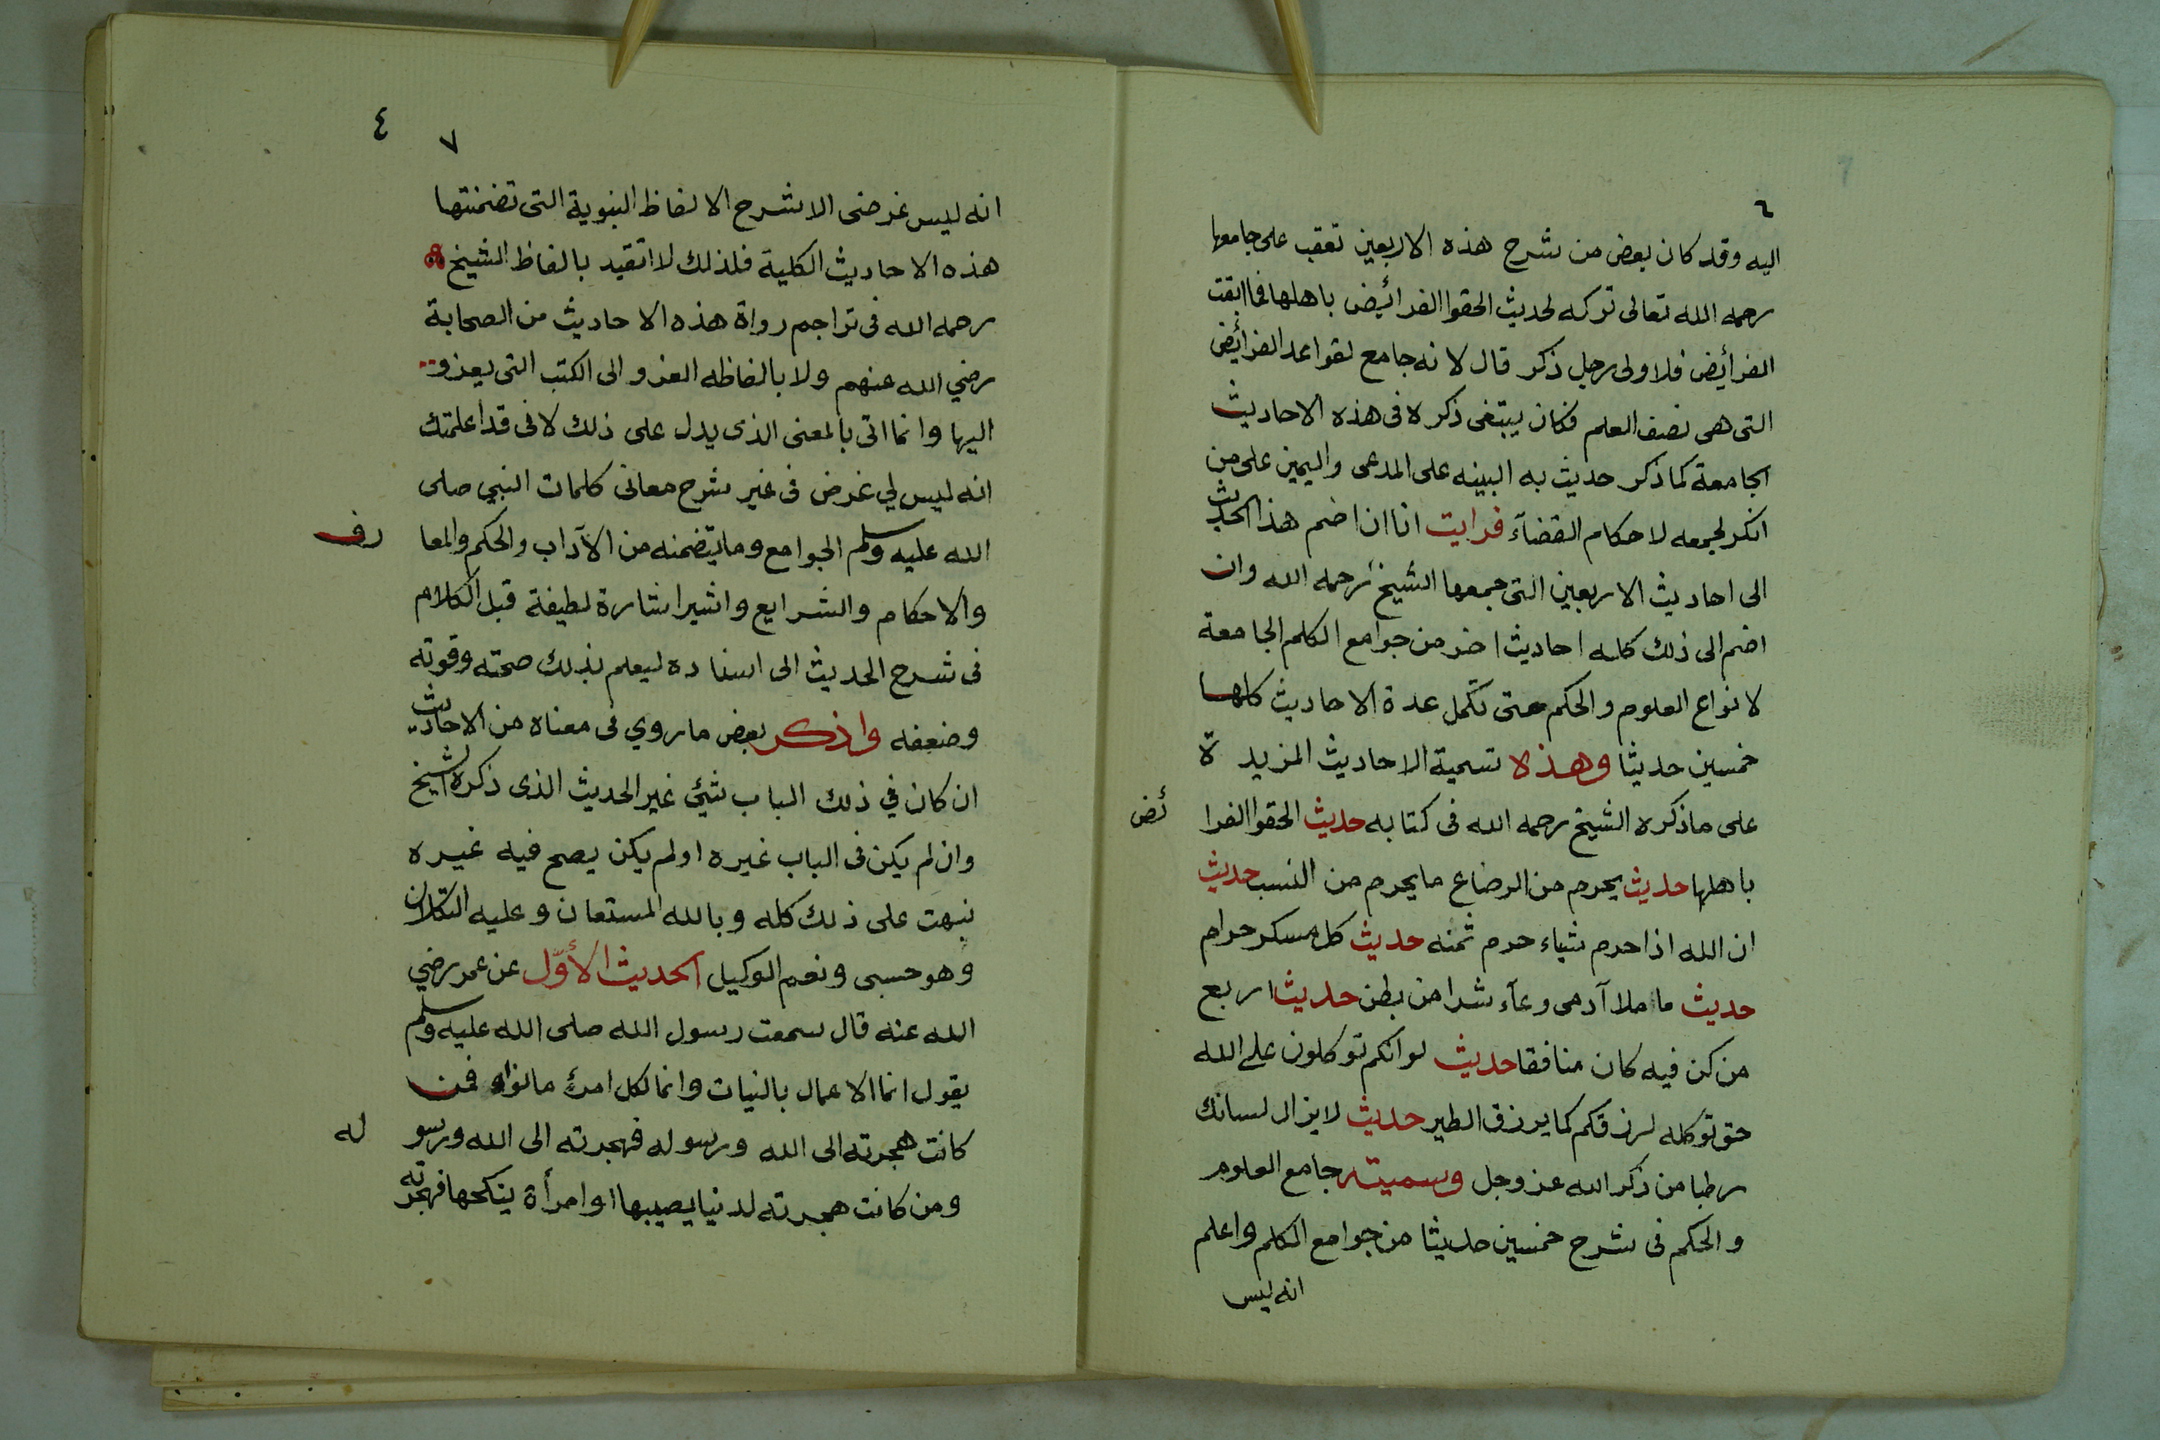 ٦
اليه وقد كان بعض من شرح هذه الاربعين تعقب على جامعها
رحمه الله تعالى تركه لحديث الحقوا الفرائيض باهلها فما ابقت
الفرأيض فلاولى رجل ذكر قال لانه جامع لقواعد الفرأيض
التى هى نصف العلم فكان يبتغى ذكره فى هذه الاحاديث
الجامعة كما ذكر حديث به البينه على المدعى واليمين على من
انكر لجمعه لاحكام القضآء فرايت انا ان اضم هذا الحديث
الى احاديث الاربعين التى جمعها الشيخ رحمه الله وان
اضم الى ذلك كله احاديث اخر من جوامع الكلم الجامعة
لانواع العلوم والحكم حتى تكمل عدة الاحاديث كلها
خمسين حديثا وهذه تسمية الاحاديث المزيدة
على ما ذكره الشيخ رحمه الله فى كتابه حديث الحقوا الفرائض
باهلها حديث يحرم من الرضاع ما يحرم من النسب حديث
ان الله اذا حرم شياء حرم ثمنه حديث كل مسكر حرام
حديث ما ملا آدمى وعآء شرا من بطن حديث اربع
من كن فيه كان منافقا حديث لو انكم توكلون على الله
حق توكله لرزقكم كما يرزق الطير حديث لا يزال لسانك
رطبا من ذكر الله عز وجل وسميته جامع العلوم
والحكم فى شرح خمسين حديثا من جوامع الكلم واعلم
انه ليس
٧ ٤
انه ليس غرضى الا شرح الالفاظ النبوية التى تضمنتها
هذه الاحاديث الكلية فلذلك لا اتقيد بالفاظ الشيخ
رحمه الله فى تراجم رواة هذه الاحاديث من الصحابة
رضي الله عنهم ولا بالفاظه العزو الى الكتب التى يعزو
اليها وانما اتى بالمعنى الذى يدل على ذلك لانى قد اعلمتك
انه ليس لي غرض فى غير شرح معانى كلمات النبي صلى
الله عليه وسلم الجوامع وما يتضمنه من الآداب والحكم والمعارف
والاحكام والشرايع واشير اشارة لطيفة قبل الكلام
فى شرح الحديث الى اسناده ليعلم بذلك صحته وقوته
وضعفه واذكر بعض ما روي فى معناه من الاحاديث
ان كان في ذلك الباب شيئ غير الحديث الذى ذكره الشيخ
وان لم يكن فى الباب غيره او لم يكن يصح فيه غيره
نبهت على ذلك كله وبالله المستعان وعليه التكلان
وهو حسبى ونعم الوكيل الحديث الأوّل عن عمر رضي
الله عنه قال سمعت رسول الله صلى الله عليه وسلم
يقول انما الاعمال بالنيات وانما لكل امرئ ما نواه فمن
كانت هجرته الى الله ورسوله فهجرته الى الله ورسوله
ومن كانت هجرته لدنيا يصيبها او امرأة ينكحها فهجرته